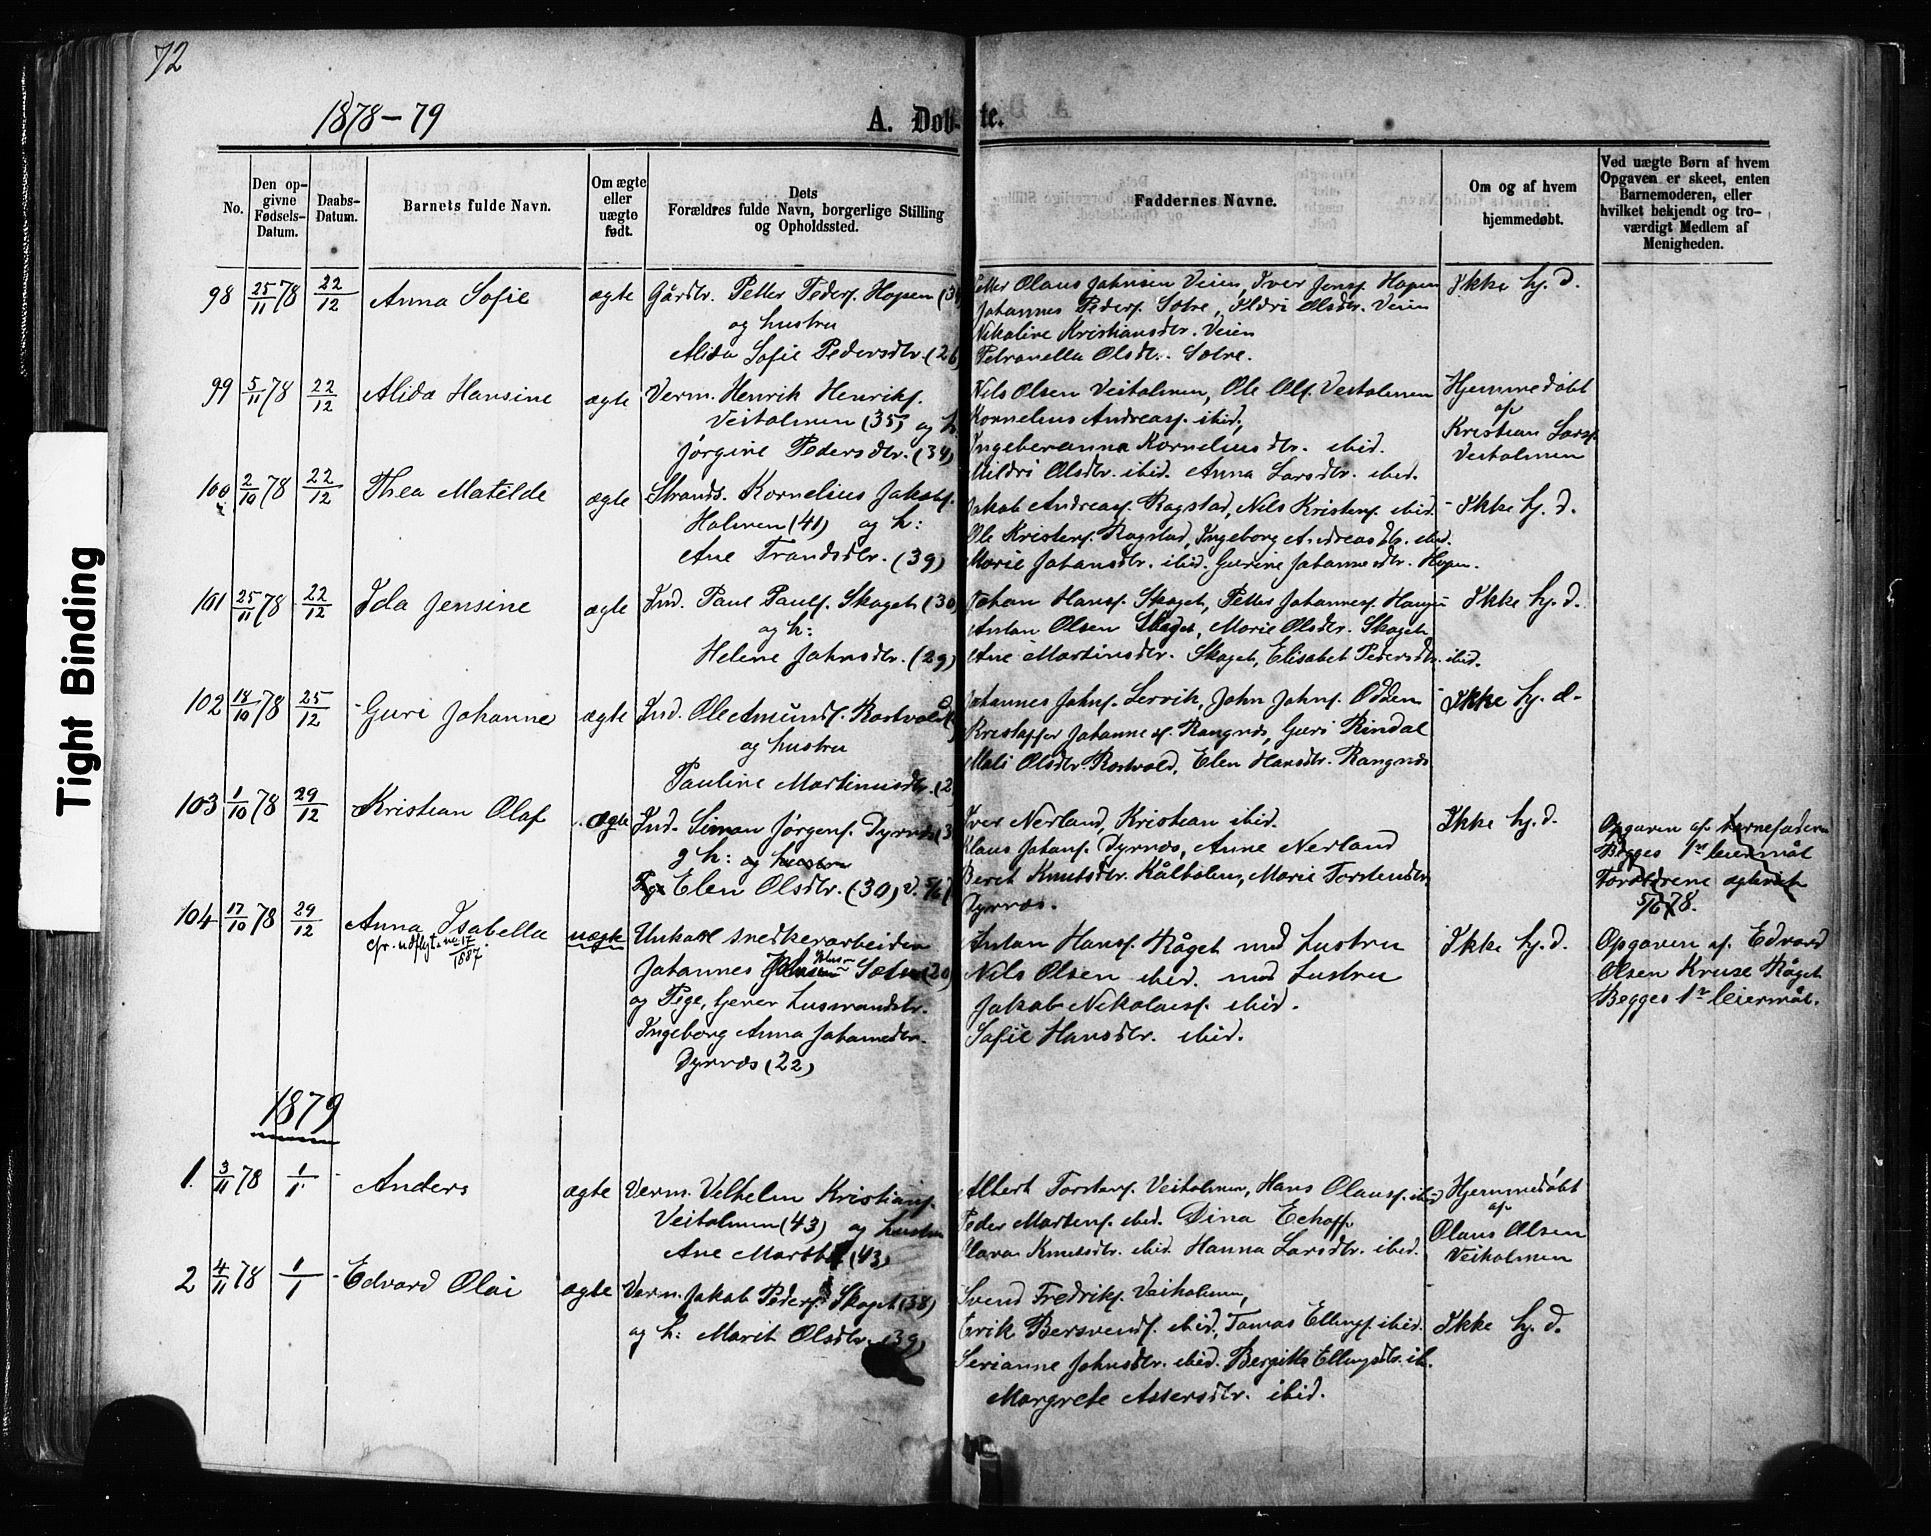 72
1878-79
A. Døb- te.
No.
Den op-
givne
Fødsels-
Datum.
Daabs-
Datum.
Barnets fulde Navn.
Om ægte
eller
uægte
født.
Dets
Forældres fulde Navn, borgerlige Stilling
og Opholdssted.
Faddernes Navne.
Om og af hvem
hjemmedøbt.
Ved uægte Børn af hvem
Opgaven er skeet, enten
Barnemoderen, eller
hvilket bekjendt og tro-
værdigt Medlem af
Menigheden.
98 25/11 78 22/12 Anna Sofie ægte
Gårdbr. Petter Peders. Hopen
og hustru
Alida Sofie Pedersdtr. (26
Petter Olaus Johnsen Veien, Iver Jonss. Hopen
Johannes Peders. Sætre, Ildri Olsdtr. Veien
Nikoline Kristiansdtr. Veien
Petronella Olsdtr. Sætre.
Ikke hj. d.
99 5/11 78 22/12 Alida Hansine ægte
Verm. Henrik Henriks.
Veiholmen (35) og h.
Jørgine Pedersdtr. (34)
Nils Olsen Veiholmen, Ole Ols. Veiholmen
Kornelius Andreass. ibid,
Ingeberanna Korneliusdtr. ibid.
Mildri Olsdtr. ibid. Anna Larsdtr. ibid.
Hjemmedøbt
af
Kristian Larss.
Veiholmen
100 2/10 78 22/12 Thea Matilde ægte
Strands. Kornelius Jakobs.
Holmen (41) og h:
Ane Trondsdtr. (39)
Jakob Andreass. Rogstad, Nils Kristens. ibid.
Ole Kristens. Rogstad, Ingeborg Andreasdtr. ibid.
Marie Johansdtr. ibid. Gurine Johannesdtr. Hopen.
Ikke hj. d.
101 25/11 78 22/12 Ida Jensine ægte
Ind. Paul Pauls. Skaget (30)
og h:
Helene Johnsdtr. (29)
Johan Hanss. Skaget, Petter Johanness.
Antan Olsen Skaget, Marie Olsdtr. Skaget
Ane Martinsdtr. Skaget, Elisabet Pedersdtr. ibid.
Ikke hj. d.
102 18/10 78 25/12 Guri Johanne ægte
Ind. Ole Amunds. Rostvold
og hustru
Pauline Martinusdtr. (2
Johannes Johns. Lervik, John Johns. Odden
Kristoffer Johanness. Rangnes, Guri Rindal
Mali Olsdtr. Rostvold, Elen Hansdtr. Rangnes
Ikke hj. d.
103 1/10 78 29/12 Kristian Olaf ægte
Ind. Simon Jørgens. Dyrnæs (3
g h: og hustru
Elen Olsdtr. (30) v. 5/6
Iver Nerland, Kristian ibid.
Klaus Johans. Dyrnæs, Anne Nerland
Beret Knutsdtr. Kålholm, Marie Torstensdtr.
Dyrnæs.
Ikke hj. d.
Opgaven af barnefaderen
Begges 1ste leiermål
Forældrene ægteviet
5/6 78.
104 17/10 78 29/12 Anna Isabella uægte
cfr. udflyt. no 17/1887.
Unkarl snedkerarbeider
Johannes Johnsen Sætre (20)
og Pige, Gever husmandsdtr.
Ingeborg Anna Johannesdtr.
Dyrnæs (22)
Antan Hanss. Råget med hustru
Nils Olsen ibid. med hustru
Jakob Nikolaiss. ibid.
Sofie Hansdtr. ibid.
Ikke hj. d.
Opgaven af Edvard
Olsen Kruse Råget
Begges 1ste leiermål.
1879
1. 3/11 78 1/1 Anders ægte
Verm. Velhelm Kristians.
Veiholmen (43) og hustru
Ane (43)
Albert Torstens. Veiholmen, Hans Olauss. ibid
Peder Martens. ibid. Dina Echoff.
Maren Knutsdtr. ibid. Hanna Larsdtr. ibid.
Hjemmedøbt
af
Olaus Olsen
Veiholmen
2 4/11 78 1/1 Edvard Olai ægte
Verm. Jakob Peders. Skaget (38)
og h: Marit Olsdtr. (39)
Svend Fredriks. Veiholmen,
Erik Bersvends. ibid, Tomas Ellings. ibid.
Serianne Johnsdtr. ibid. Bergitte Ellingsdtr. ib.
Margrete Assersdtr. ibid.
Ikke hj. d.
Tight Binding